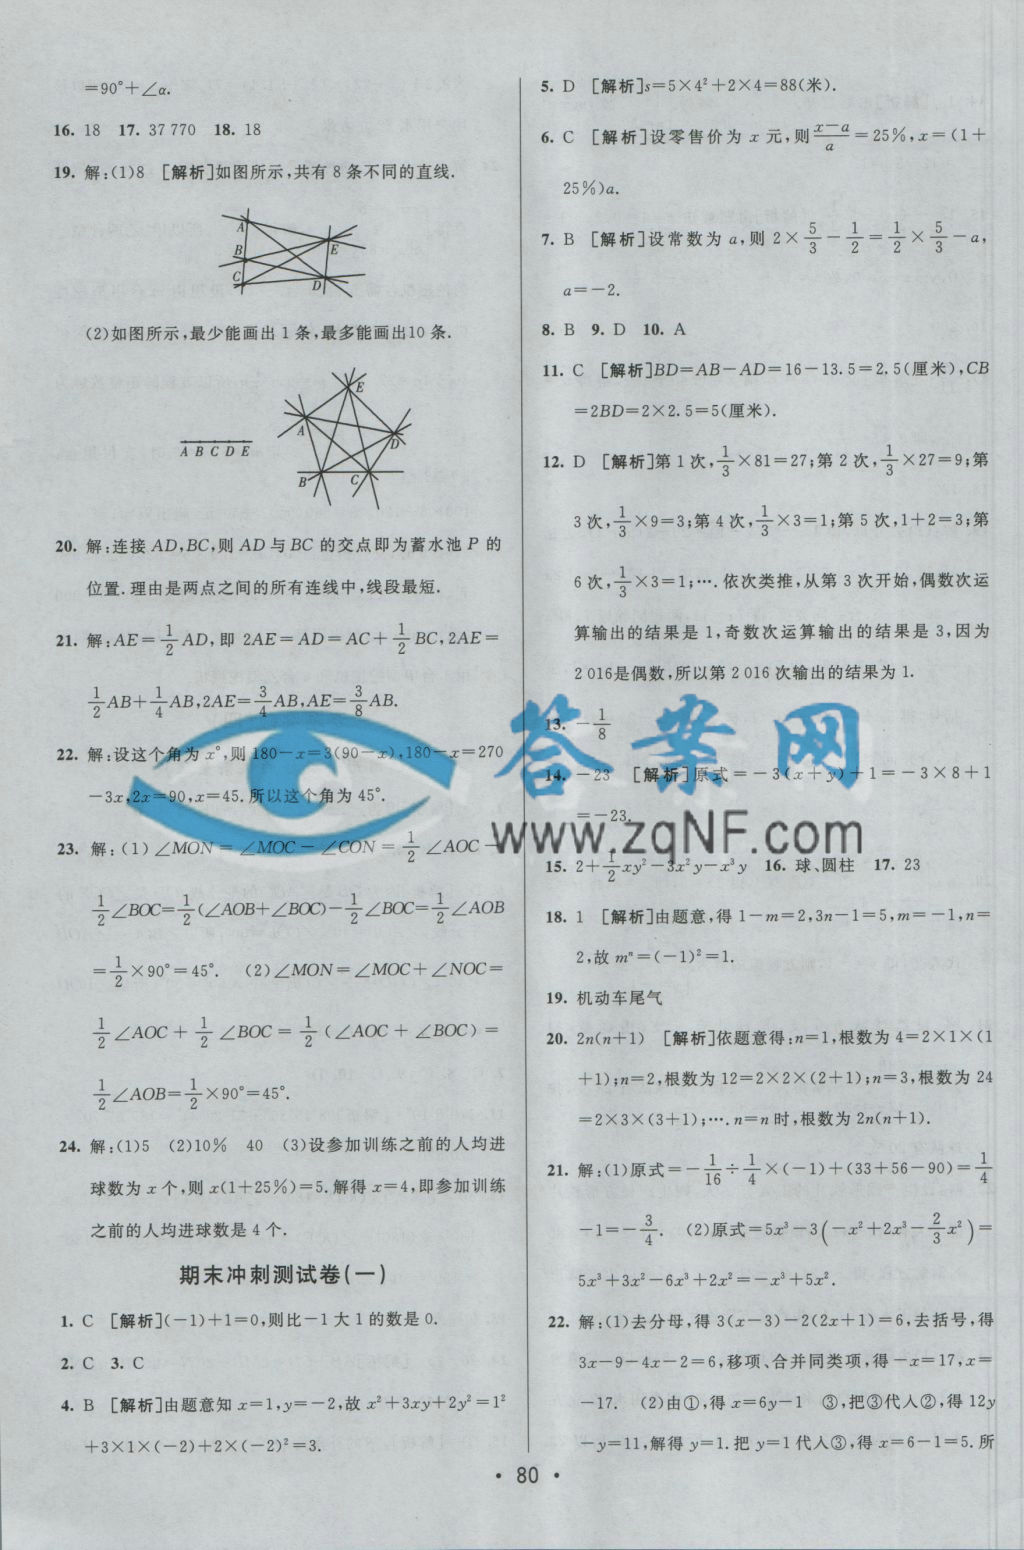 =90°+∠α.
16. 18  17. 37 770  18. 18
19. 解:(1)8  [解析]如图所示,共有 8 条不同的直线.
A
B
C
D
E
(2)如图所示,最少能画出 1 条,最多能画出10 条.
A B C D E
E
A
D
B
C
20. 解:连接 AD,BC,则 AD 与 BC 的交点即为蓄水池 P 的
位置.理由是两点之间的所有连线中,线段最短.
21. 解:AE=1/2 AD,即 2AE=AD=AC+1/2 BC,2AE=
1/2 AB+1/4 AB,2AE=3/4 AB,AE=3/8 AB.
22. 解:设这个角为 x°,则 180-x=3(90-x),180-x=270
-3x,2x=90,x=45.所以这个角为 45°.
23. 解:(1)∠MON=∠MOC-∠CON=1/2 ∠AOC-
1/2∠BOC=1/2(∠AOB+∠BOC)-1/2∠BOC=1/2∠AOB
=1/2×90°=45°.  (2)∠MON=∠MOC+∠NOC=
1/2 ∠AOC+1/2 ∠BOC=1/2(∠AOC+∠BOC)=
1/2∠AOB=1/2×90°=45°.
24. 解:(1)5  (2)10%  40  (3)设参加训练之前的人均进
球数为 x 个,则 x(1+25%)=5.解得 x=4,即参加训练
之前的人均进球数是 4 个.
期末冲刺测试卷(一)
1. C  [解析](-1)+1=0,则比-1 大 1 的数是 0.
2. C  3. C
4. B  [解析]由题意知 x=1,y=-2,故 x²+3xy+2y²=1²
+3×1×(-2)+2×(-2)²=3.
5. D  [解析]s=5×4²+2×4=88(米).
6. C  [解析]设零售价为 x 元,则(x-a)/a=25%,x=(1+
25%)a.
7. B  [解析]设常数为 a,则 2×5/3-1/2=1/2×5/3-a,
a=-2.
8. B  9. D  10. A
11. C  [解析]BD=AB-AD=16-13.5=2.5(厘米),CB
=2BD=2×2.5=5(厘米).
12. D  [解析]第 1 次,1/3×81=27;第 2 次,1/3×27=9;第
3 次,1/3×9=3;第 4 次,1/3×3=1;第 5 次,1+2=3;第
6 次,1/3×3=1;….依次类推,从第 3 次开始,偶数次运
算输出的结果是 1,奇数次运算输出的结果是 3,因为
2 016是偶数,所以第 2 016 次输出的结果为 1.
13. -1/8
14. -23  [解析]原式=-3(x+y)+1=-3×8+1
=-23.
答案网
www.zqNF.com
15. 2+1/2xy²-3x²y-x³y  16. 球、圆柱  17. 23
18. 1  [解析]由题意,得 1-m=2,3n-1=5,m=-1,n=
2,故 mⁿ=(-1)²=1.
19. 机动车尾气
20. 2n(n+1)  [解析]依题意得:n=1,根数为 4=2×1×(1
+1);n=2,根数为 12=2×2×(2+1);n=3,根数为 24
=2×3×(3+1);….n=n 时,根数为 2n(n+1).
21. 解:(1)原式=-1/16÷1/4×(-1)+(33+56-90)=1/4
-1=-3/4.  (2)原式=5x³-3(-x²+2x³-2/3x²)=
5x³+3x²-6x³+2x²=-x³+5x².
22. 解:(1)去分母,得 3(x-3)-2(2x+1)=6,去括号,得
3x-9-4x-2=6,移项、合并同类项,得-x=17,x=
-17.  (2)由①,得 x=6y-1  ③,把③代人②,得 12y
-y=11,解得 y=1.把 y=1 代人③,得 x=6-1=5.所
• 80 •